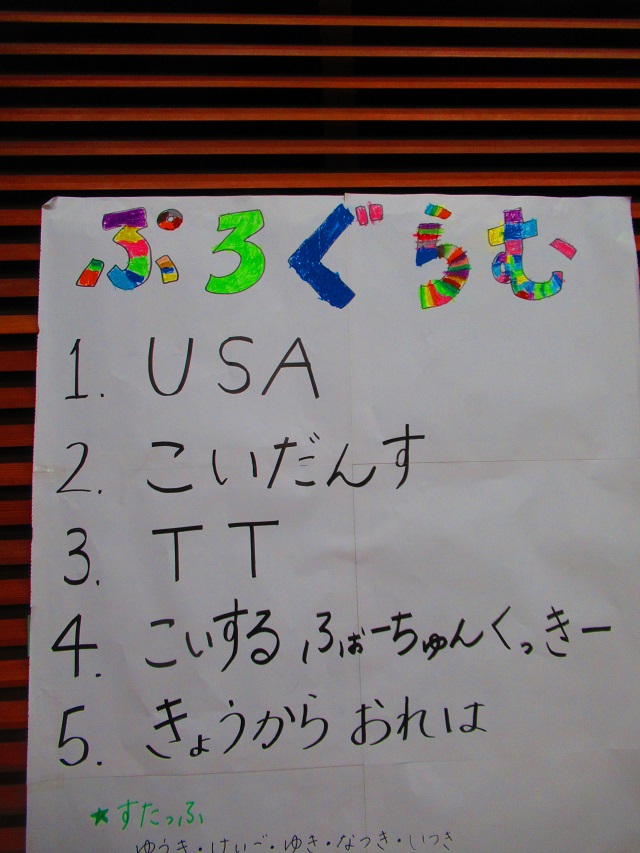 ぷろぐらむ
1. USA
2. こいだんす
3. TT
4. こいする ふぉーちゅんくっきー
5. きょうから おれは
★すたっふ
ゆうき・けいご・ゆき・なつき・いつき